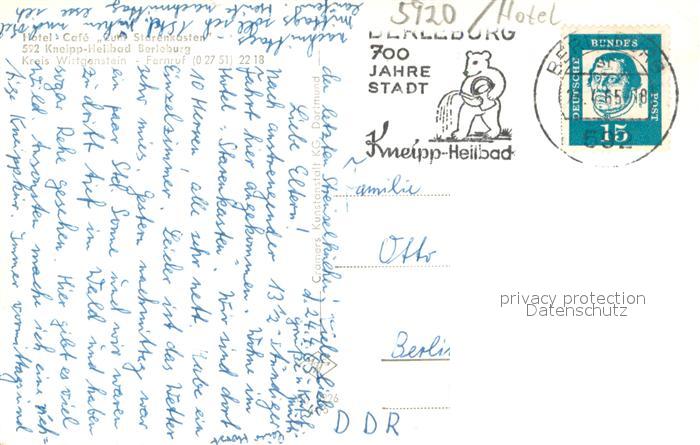 5920 / Hotel
Hotel - Café "Zum Starenkasten"
592 Kneipp-Heilbad Berleburg
Kreis Wittgenstein - Fernruf (0 27 51) 22 18
BERLEBURG
700
JAHRE
STADT
Kneipp-Heilbad
DEUTSCHE BUNDESPOST
15
Familie
Otto
Berlin
DDR
privacy protection
Datenschutz
Cramers Kunstanstalt KG, Dortmund
d. 24.4.65
Liebe Eltern!
Nach anstrengender 13 ½-stündiger
Fahrt hier angekommen. Wohne im
Hotel "Starenkasten". Wir sind dort
10 Herren, alle sehr nett. Habe ein
Einzelzimmer. Leider ist das Wetter
sehr mies. Gestern nachmittag war
ein paar Std Sonne und wir waren
zu dritt tief im Wald und haben
sogar Rehe gesehen. Hier gibt es viel
Wild. Ansonsten mache ich eine rich-
tige Kneippkur. Immer vormittags und
nachmittags
mittags soll ich 1 Std ruhen und
laufend. Heute nachmittag esse ich